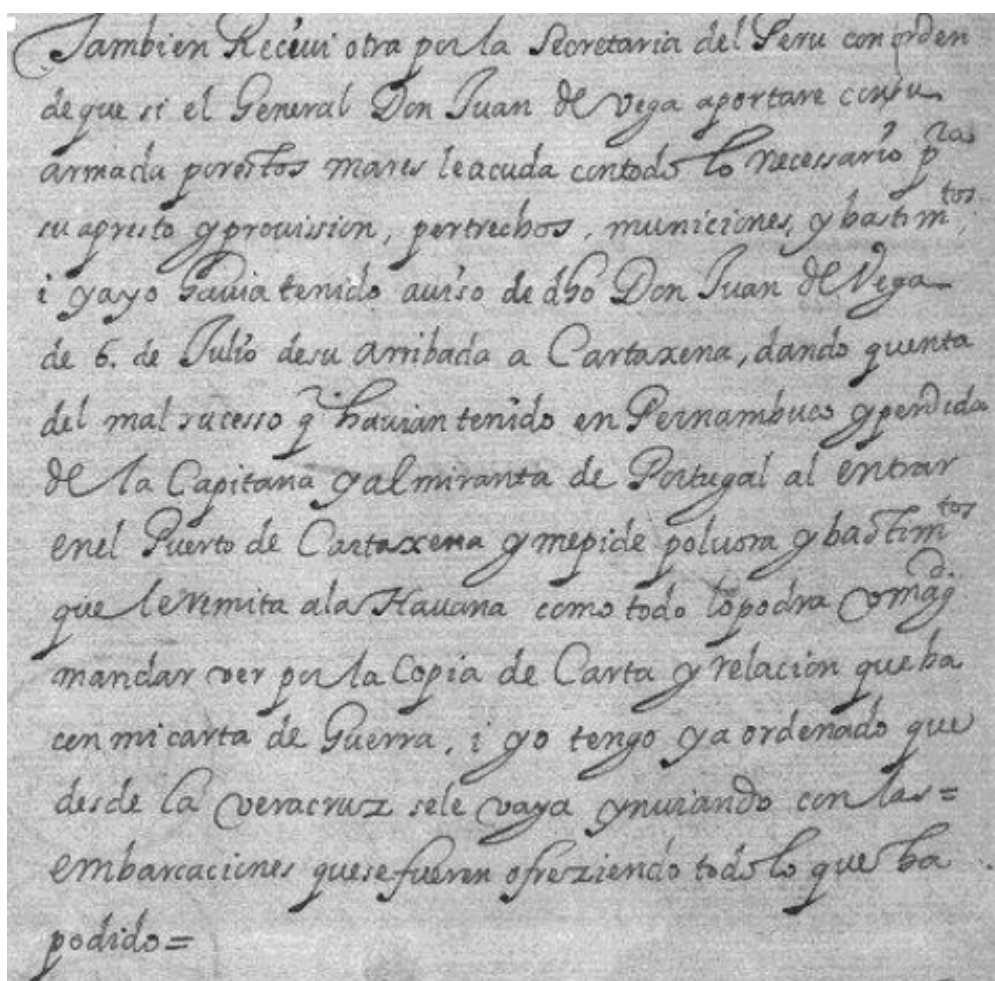 Tambien Receiui otra por la Secretaria del Peru con orden
de que si el General Don Juan de Vega aportare con su
armada por estos mares le acuda con todo lo necessario pras
su apresto y prouission, pertrechos, municiones, y bastimtos,
i ya yo hauia tenido auiso de dho Don Juan de Vega
de 6. de Julio de su arribada a Cartaxena, dando quenta
del mal sucesso q̃ hauian tenido en Pernambuco y perdida
de la Capitana y almiranta de Portugal al entrar
en el Puerto de Cartaxena y me pide poluora y bastimtos
que le remita a la Hauana como todo lo podra v magd.
mandar ver por la Copia de Carta y relacion que ba
con mi carta de Guerra, i yo tengo ya ordenado que
desde la veracruz se le vaya ynuiando con las=
embarcaciones que se fueren ofreziendo todo lo que ha
podido=